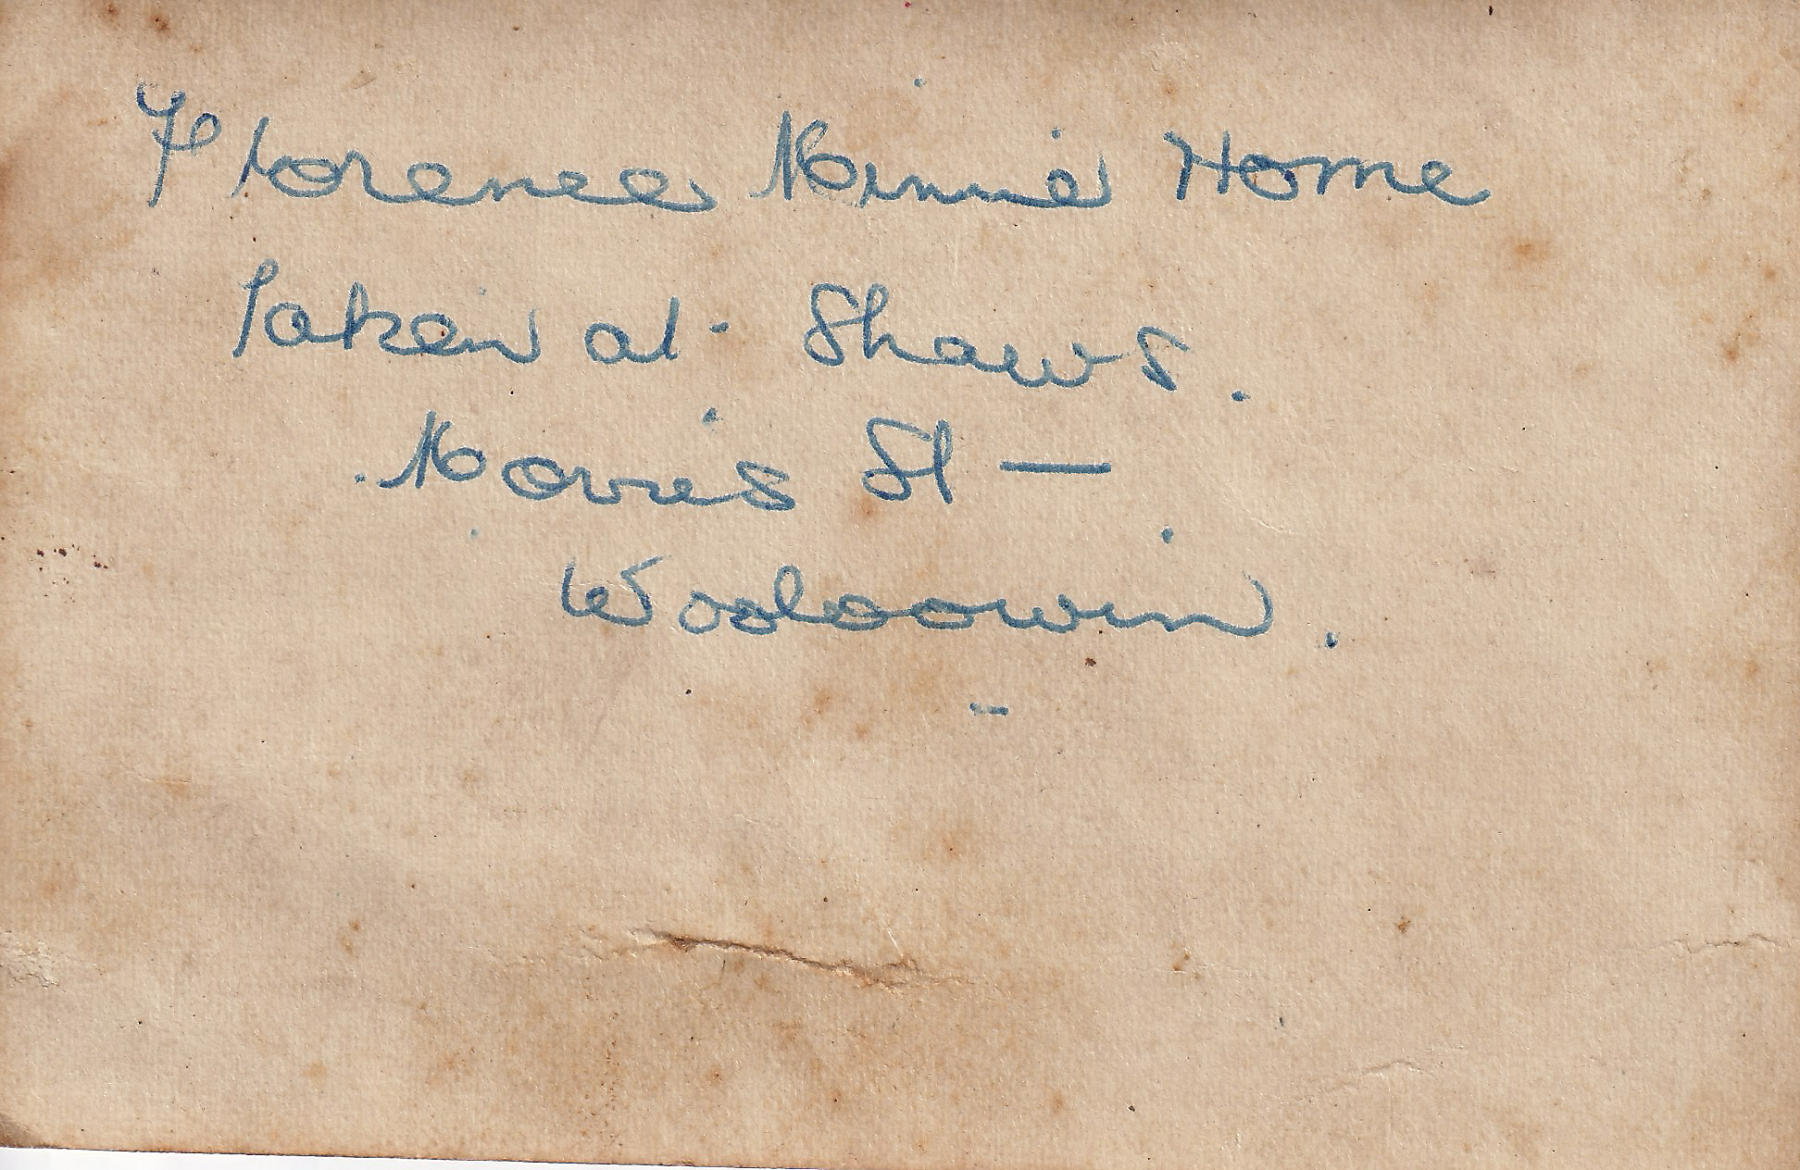 Florence Minnie Home
Taken at Shaws.
Morris St —
Wooloowin.